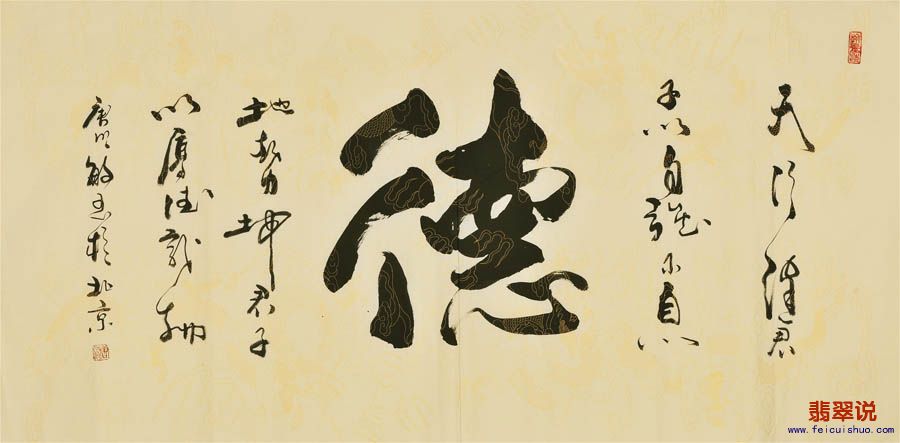 天行健君
子以自强不息
德
地势坤君子
以厚德载物
敏书於北京
翡翠说
www.feicuishuo.com